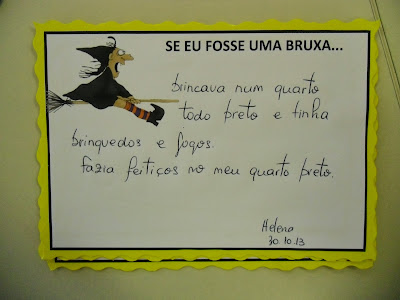 SE EU FOSSE UMA BRUXA...
brincava num quarto
todo preto e tinha
brinquedos e fogos.
fazia feitiços no meu quarto preto.
Helena
30.10.13